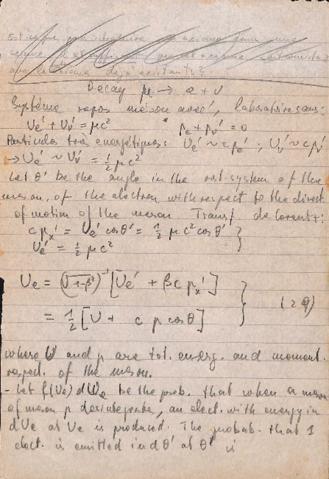 Decay μ → e + ν
Système repos méson avec, laboratoire sans:
Ue' + Uν' = μc² pe' + pν' = 0
Particules très énergétiques: Ue' ~ cpe' ; Uν' ~ cpν'
→ Ue' ~ Uν' = ½ μc²
Let θ' be the angle in the rest system of the
meson, of the electron with respect to the direct.
of motion of the meson. Transf. de Lorentz:
c px' = Ue' cosθ' = ½ μc² cosθ'
Ue' = ½ μc²
Ue = (√1-β²)⁻¹ [Ue' + βc px']
= ½ [U + c p cosθ'] (29)
where U and p are tot. energ. and moment.
respect. of the meson.
- Let f(Ue) dUe be the prob. that when a meson
of mom p desintegrate, an elect. with energy in
dUe at Ue is produced. The probab. that 1
elect. is emitted in dθ' at θ' is